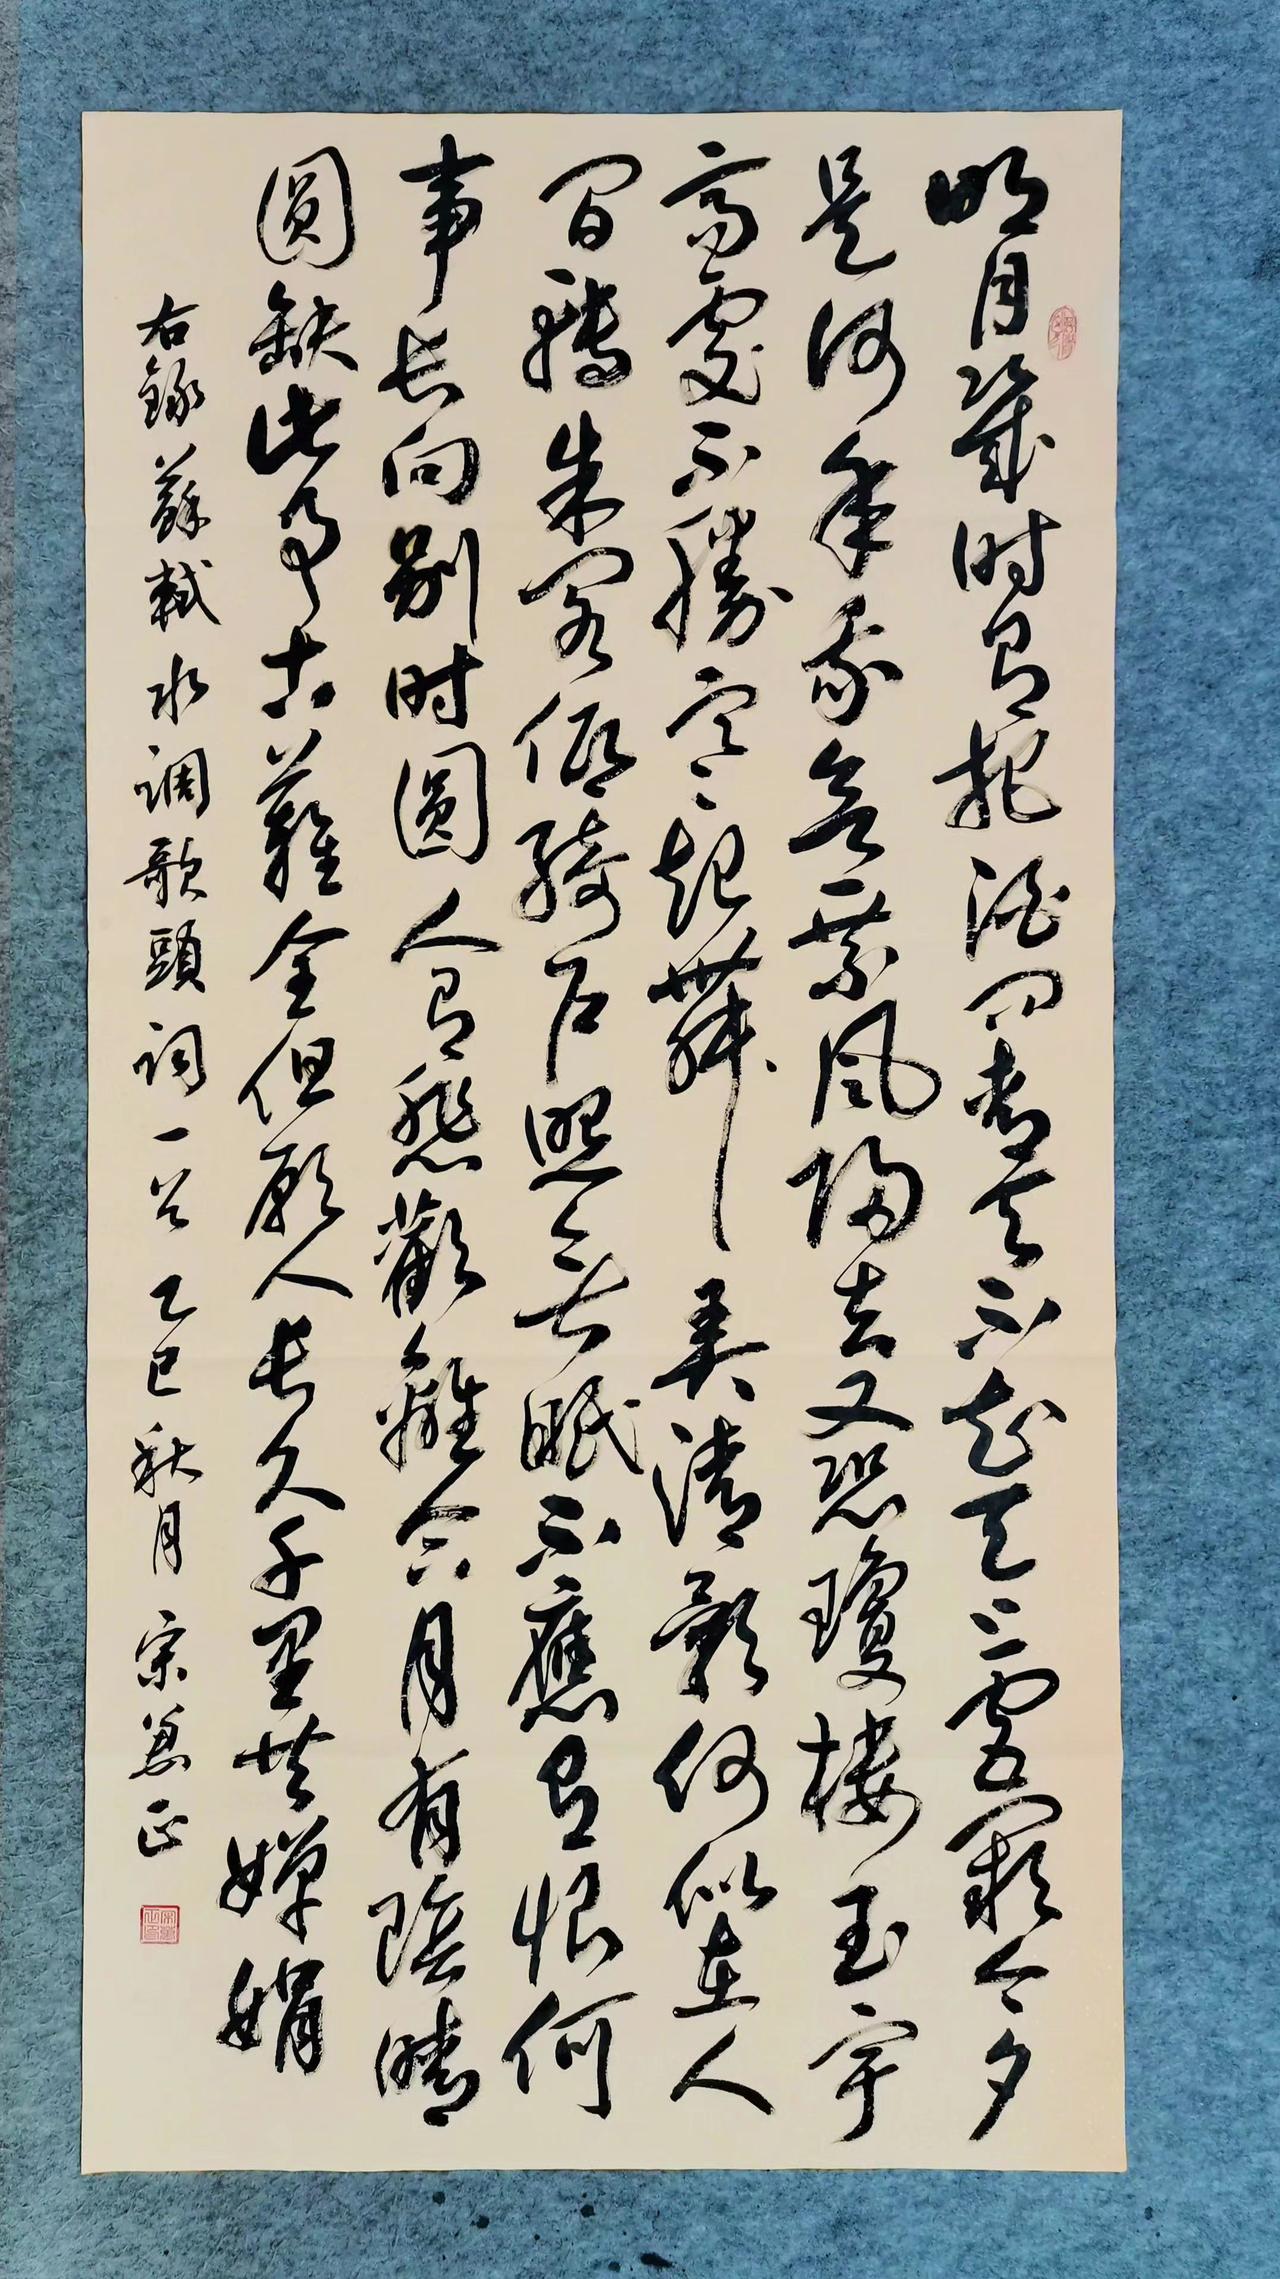 明月幾时有把酒问青天不知天上宫阙今夕
是何年我欲乘风歸去又恐瓊楼玉宇
高處不勝寒起舞弄清影何似在人
间轉朱阁低綺户照无眠不應有恨何
事长向别时圓人有悲歡離合月有陰晴
圓缺此事古難全但願人长久千里共嬋娟
右録蘇軾水调歌頭词一首 乙巳秋月 宗 正